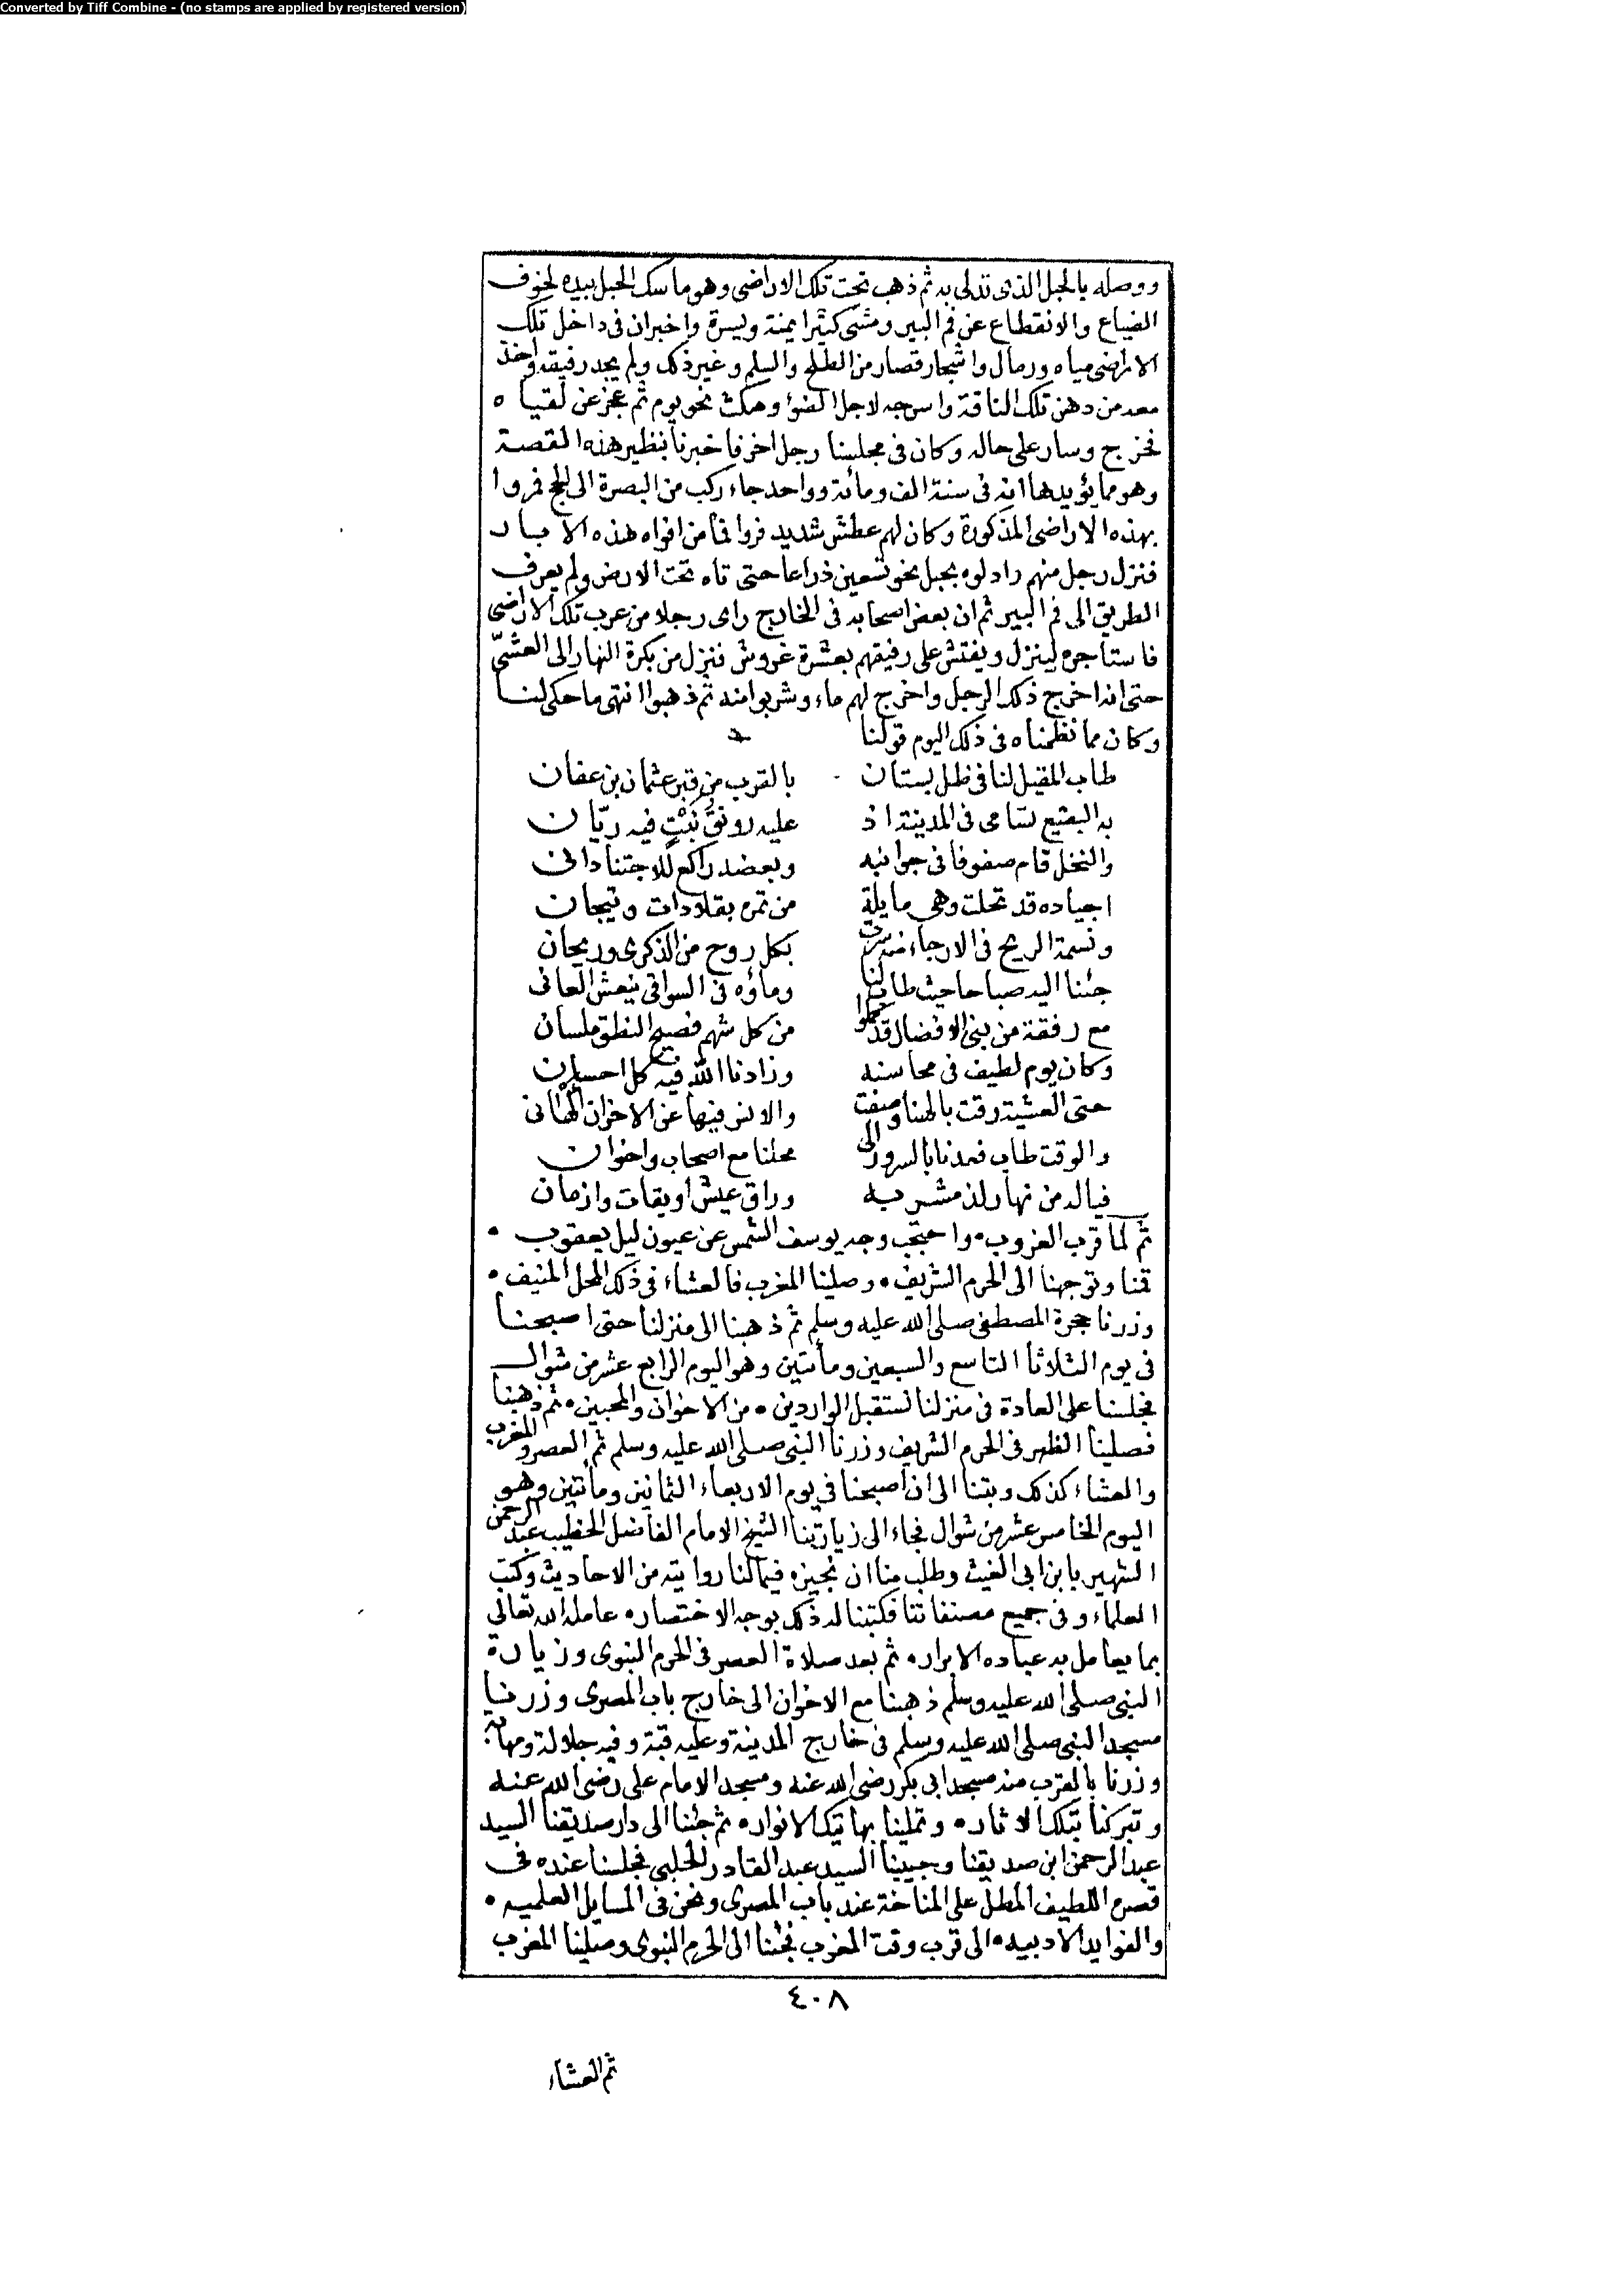 Converted by Tiff Combine - (no stamps are applied by registered version)
ووصله بالحبل الذى تدلى به ثم ذهب تحت تلك الاراضى وهو ماسك الحبل بيده لخوف
الضياع والانقطاع عن فم البير ومشى كثيرا يمنة ويسرة واخبر ان فى داخل تلك
الاراضى مياه ورمال واشجار قصار من الطلح والسلم وغير ذلك ولم يجد رفيقه واخذ
معه من دهن تلك الناقة واسرجه لاجل الضوٴ ومكث نحو يوم ثم عجز عن لقياه
فخرج وسار على حاله وكان فى مجلسنا رجل اخر فاخبرنا بنظير هذه القصة
وهو مما يؤيدها انه فى سنة الف ومائة وواحد جاء ركب من البصرة الى الحج فمروا
بهذه الاراضى المذكورة وكان لهم عطش شديد فروا فما من افواه هذه الابار
فنزل رجل منهم وادلوه بحبل نحو تسعين ذراعا حتى تاه تحت الارض ولم يعرف
الطريق الى فم البير ثم ان بعض اصحابه فى الخارج راى رجلا من عرب تلك الاراضى
فاستأجره لينزل ويفتش على رفيقهم بعشرة غروش فنزل من بكرة النهار الى العشىّ
حتى انه اخرج ذلك الرجل واخرج لهم ماء وشربوا منه ثم ذهبوا انتهى ما حكى لنا
وكان مما نظمناه فى ذلك اليوم قولنا
طاب المقيل لنا فى ظل بستان بالقرب من قبر عثمان بن عفان
به البقيع تسامى فى المدينة اذ عليه رونقُ نَبْتٍ فيه ريّان
والنخل قام صفوفا فى جوانبه وبعضه راكع للاجتنا دانى
اجياده قد تحلت وهى مايلة من تمره بقلادات وتيجان
ونسمة الريح فى الارجاء منه سرت بكل روح من الذكرى وريحان
جئنا اليه صباحا حيث طاب لنا وماؤه فى السواقى ينعش العانى
مع رفقة من بنى الافضال قد كملوا من كل شهم فصيح النطق ملسان
وكان يوم لطيف فى محاسنه وزادنا الله فيه كل احسان
حتى العشية رقت بالهنا وصفت والانس فيها عن الاخوان الهانى
والوقت طاب فعدنا بالسرور الى محلنا مع اصحاب واخوان
فياله من نهار لذ مشربه وراق عيش اويقات وازمان
ثم لما قرب الغروب • واحتجب وجه يوسف الشمس عن عيون ليل يعقوب •
قمنا وتوجهنا الى الحرم الشريف • وصلينا المغرب فالعشاء فى ذلك المحل المنيف •
وزرنا حجرة المصطفى صلى الله عليه وسلم ثم ذهبنا الى منزلنا حتى اصبحنا
فى يوم الثلاثا التاسع والسبعين ومأتين وهو اليوم الرابع عشر من شوال
فجلسنا على العادة فى منزلنا نستقبل الواردين • من الاخوان والمحبين • ثم ذهبنا
فصلينا الظهر فى الحرم الشريف وزرنا النبى صلى الله عليه وسلم ثم العصر والمغرب
والعشاء كذلك وبتنا الى ان اصبحنا فى يوم الاربعاء الثمانين ومأتين وهو
اليوم الخامس عشر من شوال فجاء الى زيارتنا الشيخ الامام الفاضل الخطيب عبد الرحمن
الشهير بابن ابى الغيث وطلب منا ان نجيزه فيما لنا روايته من الاحاديث وكتب
العلماء وفى جميع مصنفاتنا فكتبنا له ذلك بوجه الاختصار • عامله الله تعالى
بما يعامل به عباده الابرار • ثم بعد صلاة العصر فى الحرم النبوى وزيارة
النبى صلى الله عليه وسلم ذهبنا مع الاخوان الى خارج باب المصرى وزرنا
مسجد النبى صلى الله عليه وسلم فى خارج المدينة وعليه قبة وفيه جلالة ومهابة
وزرنا بالقرب منه مسجد ابى بكر رضى الله عنه ومسجد الامام على رضى الله عنه
وتبركنا بتلك الاثار • وتملينا بهاتيك الانوار • ثم جئنا الى دار صديقنا السيد
عبد الرحمن ابن صديقنا وحبيبنا السيد عبد القادر الحلبى فجلسنا عنده فى
قصره اللطيف المطل على المناخة عند باب المصرى ونحن فى المسايل العلميه •
والفوايد الادبيه • الى قرب وقت المغرب فجئنا الى الحرم النبوى وصلينا المغرب
٤٠٨
ثم العشاء